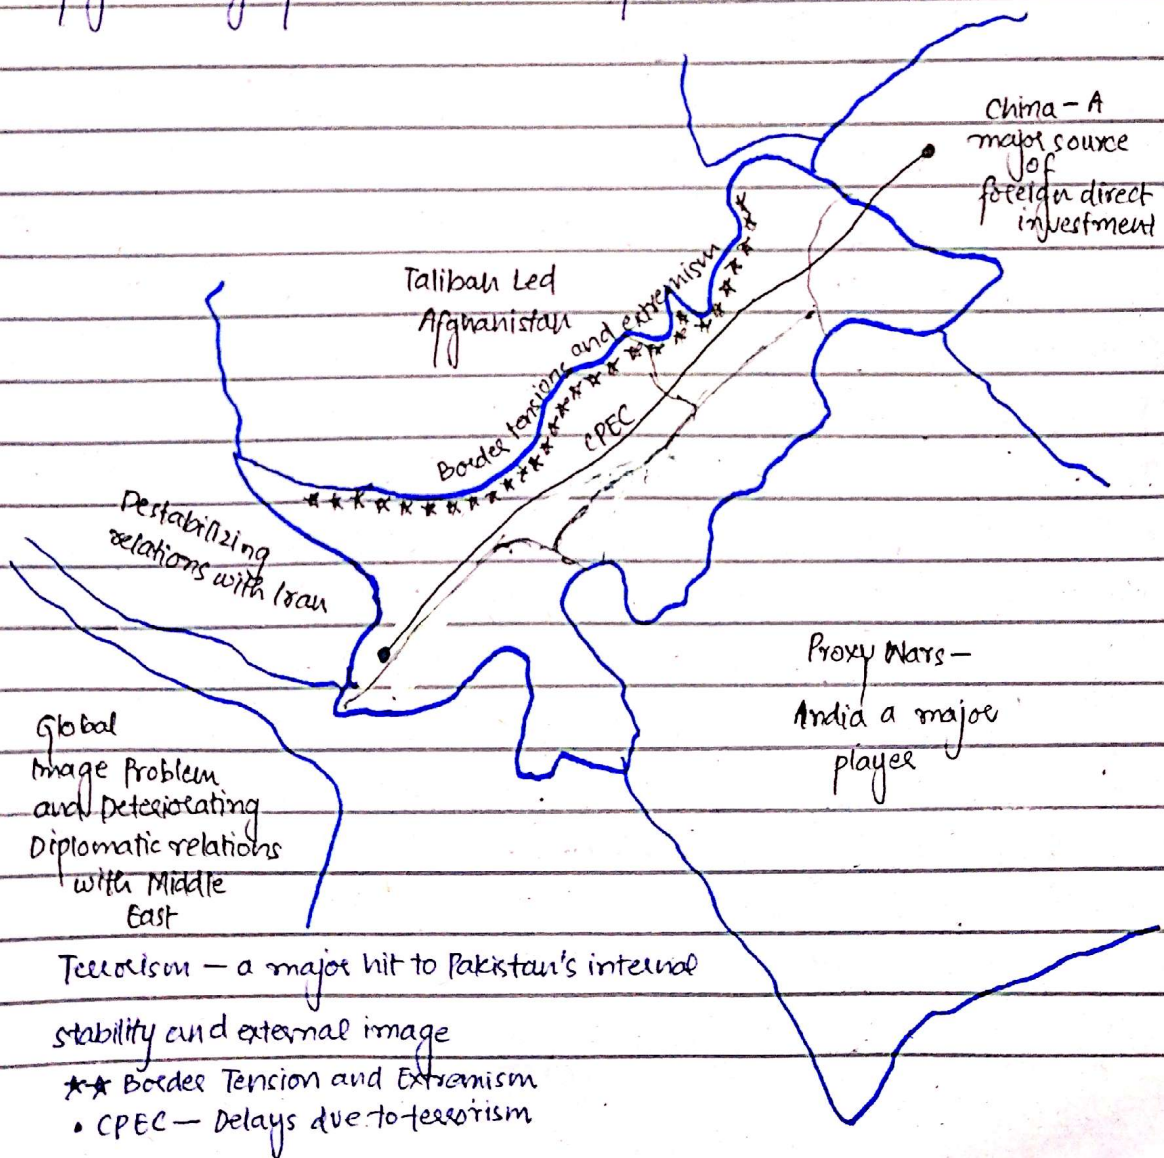 China - A
major source
of
foreign direct
investment
Taliban Led
Afghanistan
Border tensions and extremism
CPEC
Destabilizing
relations with Iran
Proxy Wars -
India a major
player
Global
Image Problem
and Deteriorating
Diplomatic relations
with Middle
East
Terrorism - a major hit to Pakistan's internal
stability and external image
★★ Border Tension and Extremism
• CPEC - Delays due to terrorism